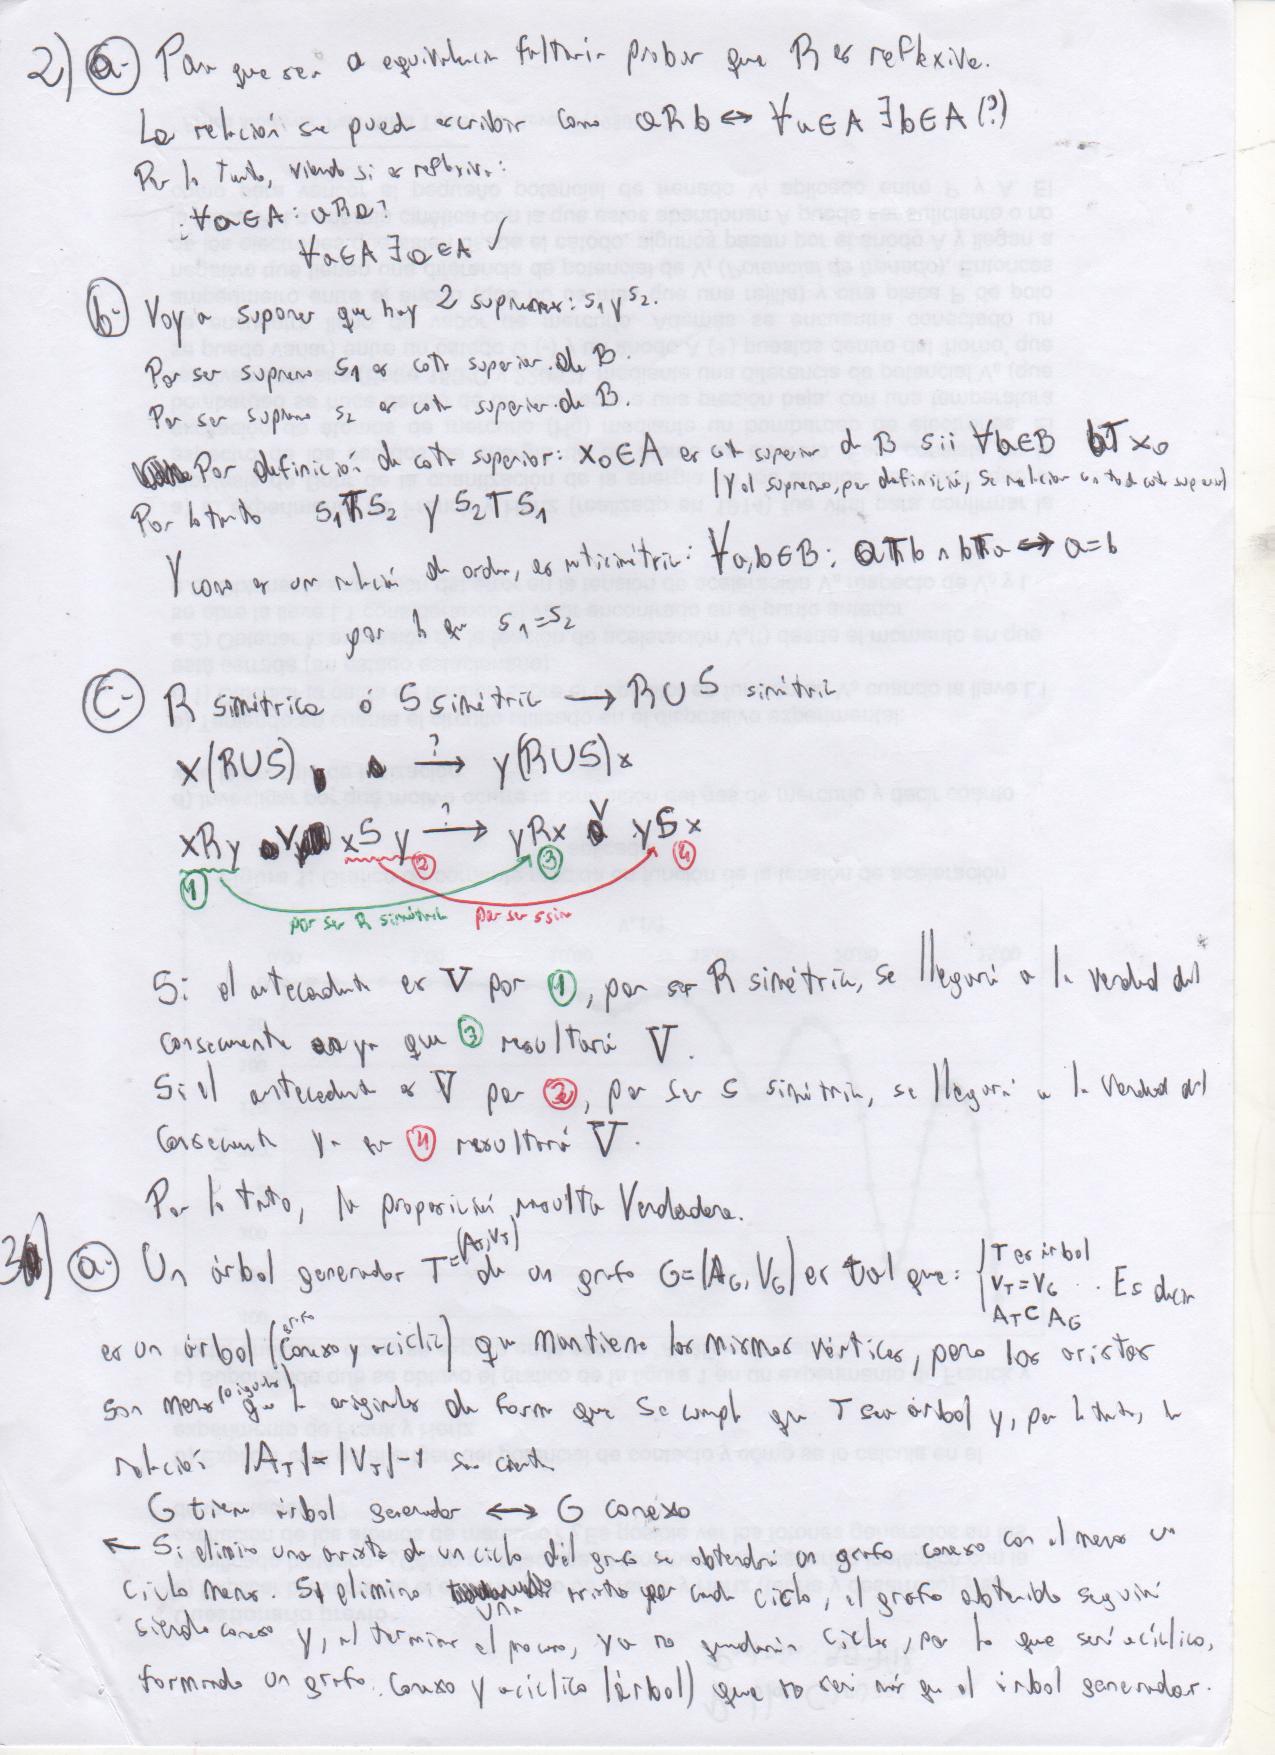 2) a- Para que sea a equivalencia faltaría probar que R es reflexiva.
La relación se puede escribir como aRb ↔ ∀a∈A ∃b∈A (?)
Por lo tanto, viendo si es reflexiva:
∀a∈A: aRa?
∀a∈A ∃a∈A ✓
b- Voy a suponer que hay 2 supremos: s₁ y s₂.
Por ser supremo s₁ es cota superior de B.
Por ser supremo s₂ es cota superior de B.
Por definición de cota superior: x₀∈A es cota superior de B sii ∀b∈B bTx₀
(y el supremo, por definición, se relaciona con toda cota superior)
Por lo tanto s₁Ts₂ y s₂Ts₁
Y como es una relación de orden, es antisimétrica: ∀a,b∈B: aTb ∧ bTa ↔ a=b
por lo que s₁=s₂
c- R simétrica o S simétrica → R∪S simétrica
x(R∪S)y →? y(R∪S)x
xRy ∨ xSy →? yRx ∨ ySx
1 2 3 4
por ser R simétrica por ser S sim
Si el antecedente es V por 1, por ser R simétrica, se llegará a la verdad del
consecuente ya que 3 resultará V.
Si el antecedente es V por 2, por ser S simétrica, se llegará a la verdad del
consecuente ya que 4 resultará V.
Por lo tanto, la proposición resulta Verdadera.
3) a- Un árbol generador T=(A_T,V_T) de un grafo G=(A_G,V_G) es tal que: { T es árbol V_T=V_G A_T⊂A_G . Es decir
es un árbol (grafo conexo y acíclico) que mantiene los mismos vértices, pero las aristas
son menos (o iguales) que las originales de forma que se cumpla que T sea árbol y, por lo tanto, la
relación |A_T|=|V_T|-1 sea cierta.
G tiene árbol generador ↔ G conexo
← Si elimino una arista de un ciclo del grafo se obtendrá un grafo conexo con al menos un
ciclo menos. Si elimino una arista por cada ciclo, el grafo obtenido seguirá
siendo conexo y, al terminar el proceso, ya no quedarán ciclos, por lo que será acíclico,
formando un grafo conexo y acíclico (árbol) que no será más que el árbol generador.